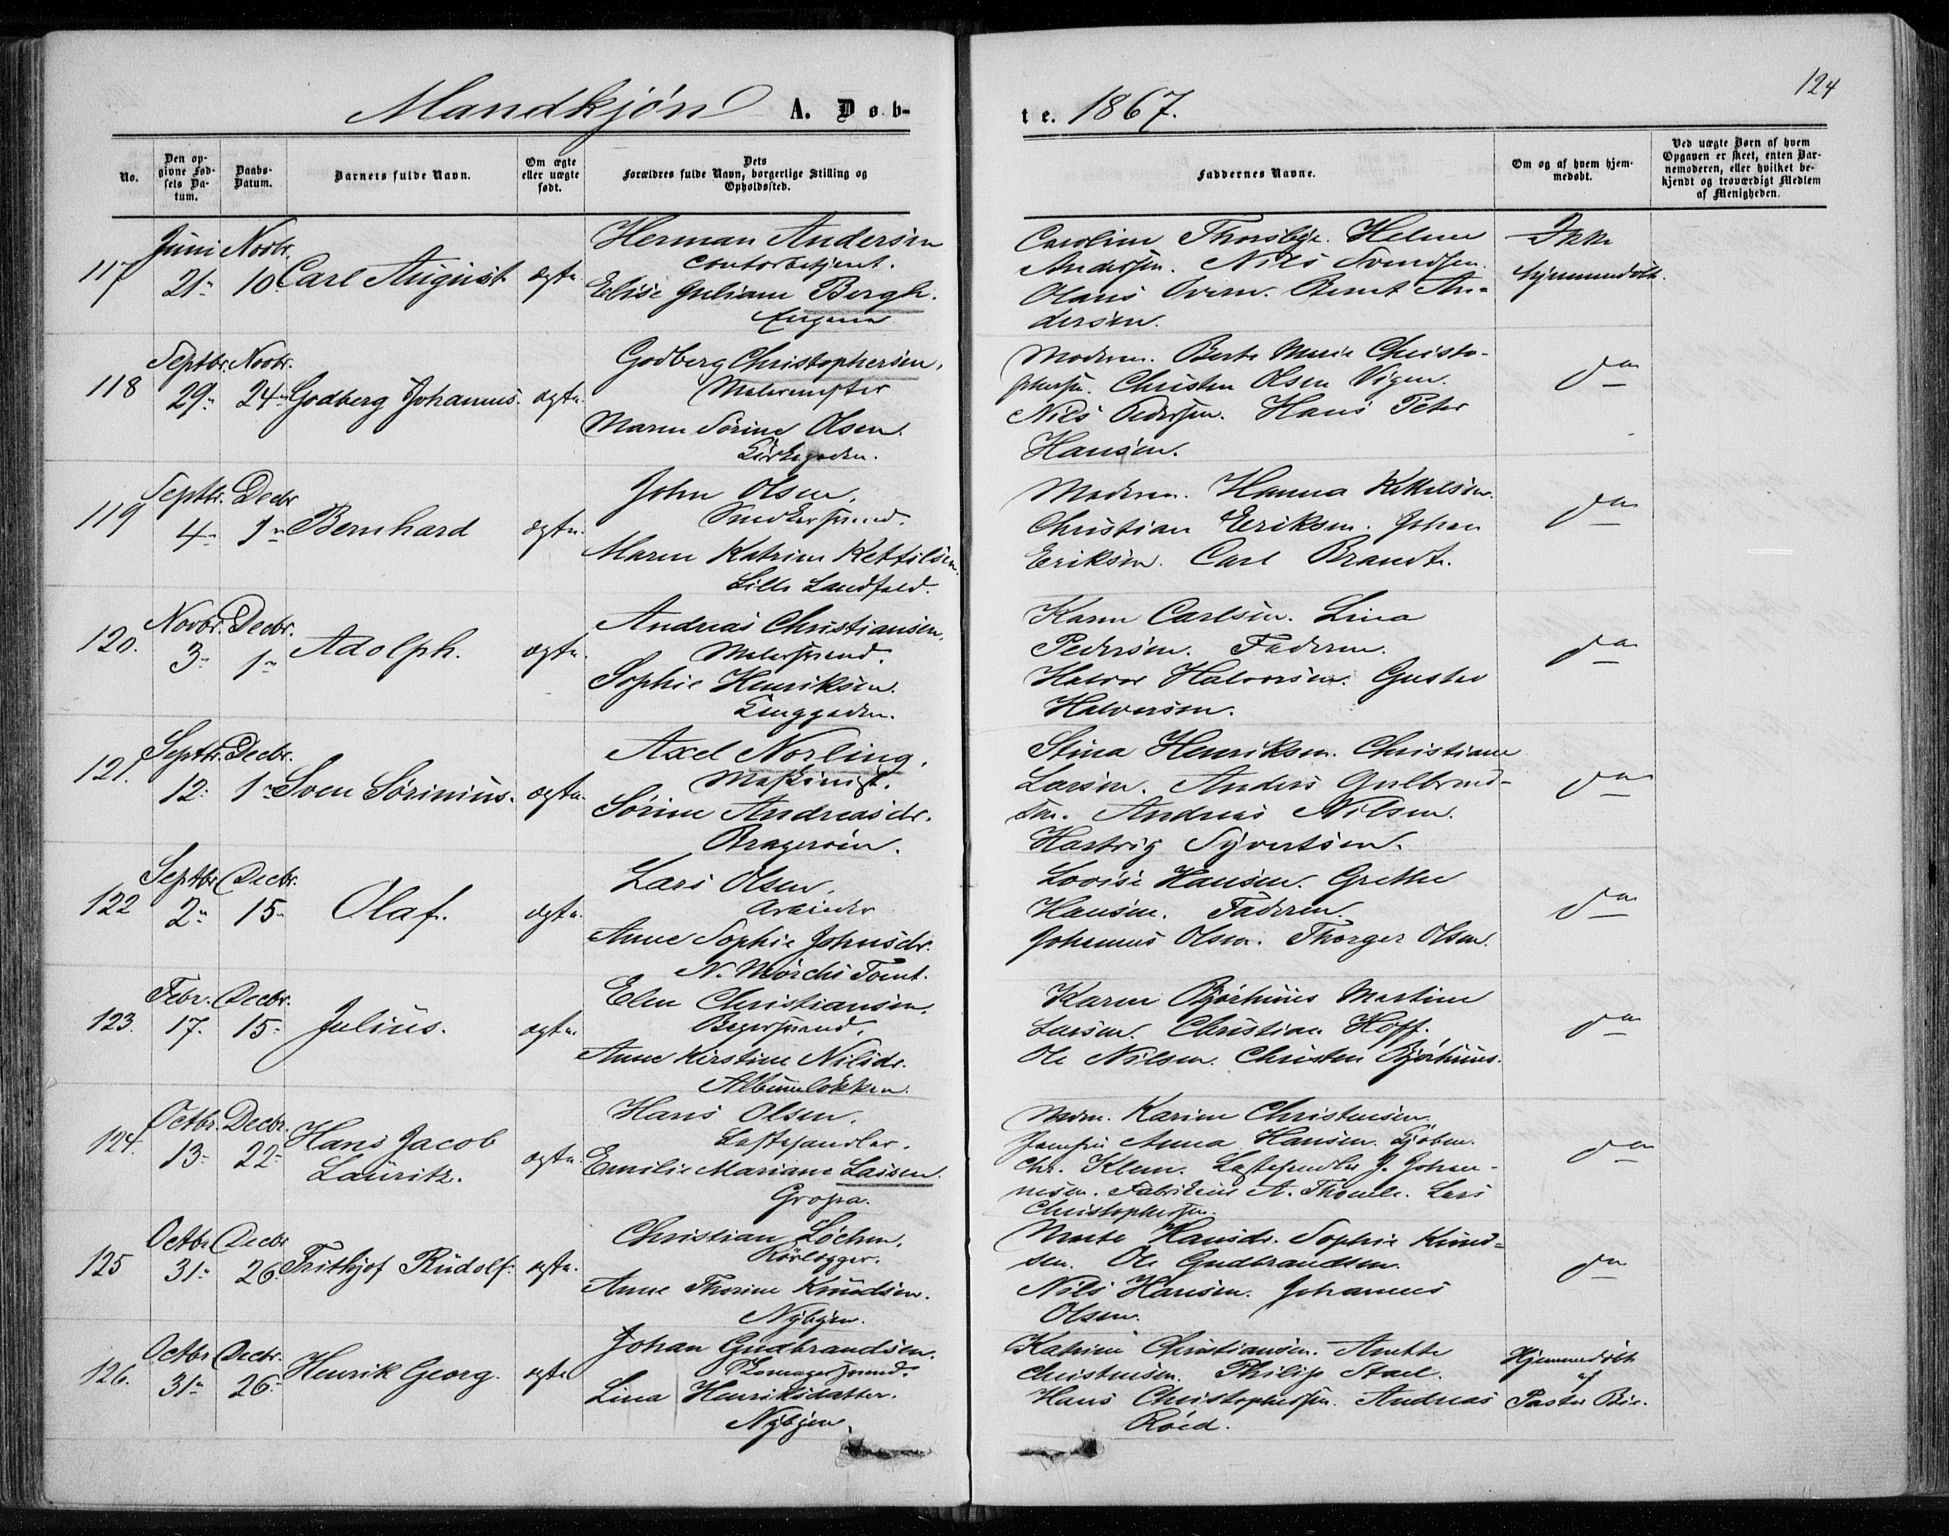 Mandkjøn A. Døb-
te. 1867.
124
No.
Den op-
givne Fød-
sels Da-
tum.
Daabs-
Datum.
Barnets fulde Navn.
Om ægte
eller uægte
født.
Dets
Forældres fulde Navn, borgerlige Stilling og
Opholdssted.
Faddernes Navne.
Om og af hvem hjem-
medøbt.
Ved uægte Børn af hvem
Opgaven er skeet, enten Bar-
nemoderen, eller hvilket be-
kjendt og troværdigt Medlem
af Menigheden.
117
Juni
21
Novbr.
10
Carl August
ægte
Herman Andersen
Contorbetjent.
Elise Juliane Bergh.
Engene
Caroline Thorsbye. Helene
Andersen. Nils Svendsen.
Olaus Svern. Bernt An-
dersen.
Ikke
hjemmedøbt.
118
Septbr.
29
Novbr.
24
Godberg Johannes.
ægte.
Godberg Christophersen.
Malermester
Maren Sørine Olsen.
Kirkegaden.
Moderen. Berte Marie Christo-
phersen. Christen Olsen Vigen.
Nils Pedersen. Hans Peter
Hansen.
do
119
Septbr.
4
Decbr
1
Bernhard
ægte.
John Olsen.
Snedkersvend.
Maren Katrine Kettilsen.
Lille Landfald.
Moderen. Hanna Kettelsen.
Christian Eriksen. Johan
Eriksen. Carl Brandt.
do
120.
Novbr.
3
Decbr.
1
Adolph.
ægte.
Andreas Christiansen.
Malersvend.
Sophie Henriksen.
Langgaden.
Karen Carlsen. Lina
Pedersen. Faderen.
Halvor Halvorsen. Gustav
Halvorsen.
do
121.
Septbr.
12
Decbr.
1
Sven Sørinius.
ægte.
Axel Norling.
Maskinist.
Sørine Andreasdr.
Bragerøen.
Stina Henriksen. Christiane
Larsen. Anders Gulbrand-
sen. Andreas Nilsen.
Hartvig Syvertsen.
do
122
Septbr
2
Decbr.
15
Olaf.
ægte.
Lars Olsen.
Arbeider
Anne Sophie Johnsdr.
N. Mørchs Tomt.
Lovise Hansen. Grethe
Hansen. Faderen.
Johannes Olsen. Thorger Olsen.
do
123.
Febr.
17.
Decbr.
15
Julius.
ægte.
Elen Christiansen.
Bagersvend.
Anne Kirstine Nilsdr.
Albumløkken.
Karen Bjørhuus Martine
Larsen. Christian Hoff.
Ole Nilsen. Christen Bjørhuus.
do
124.
Octbr.
13
Decbr.
22
Hans Jacob
Lauritz.
ægte.
Hans Olsen.
Lastehandler.
Emilie Mariane Larsen.
Gropa.
Madm. Karine Christensen.
Jomfru Anna Hansen. Kjøbm.
Chr. Klem. Lastehandler J. Johan-
nesen. Fabrikeier A. Thomle. Lars
Christophersen.
do
125
Octbr
31
Decbr
26
Frithjof Rudolf.
ægte.
Christian Løchen.
Rørlægger.
Anne Thorine Knudsen.
Nybyen.
Marte Hansdr. Sophie Knud-
sen. Ole Gudbrandsen.
Nils Hansen. Johannes
Olsen.
do
126.
Octbr
31
Decbr.
26
Henrik Georg.
ægte
Johan Gudbrandsen.
Skomagersvend.
Lina Henriksdatter.
Nybyen.
Katrine Christiansen. Anette
Christensen. Philip Stael.
Hans Christophersen. Andreas
Röed.
Hjemmedøbt
af
Pastor Bie.